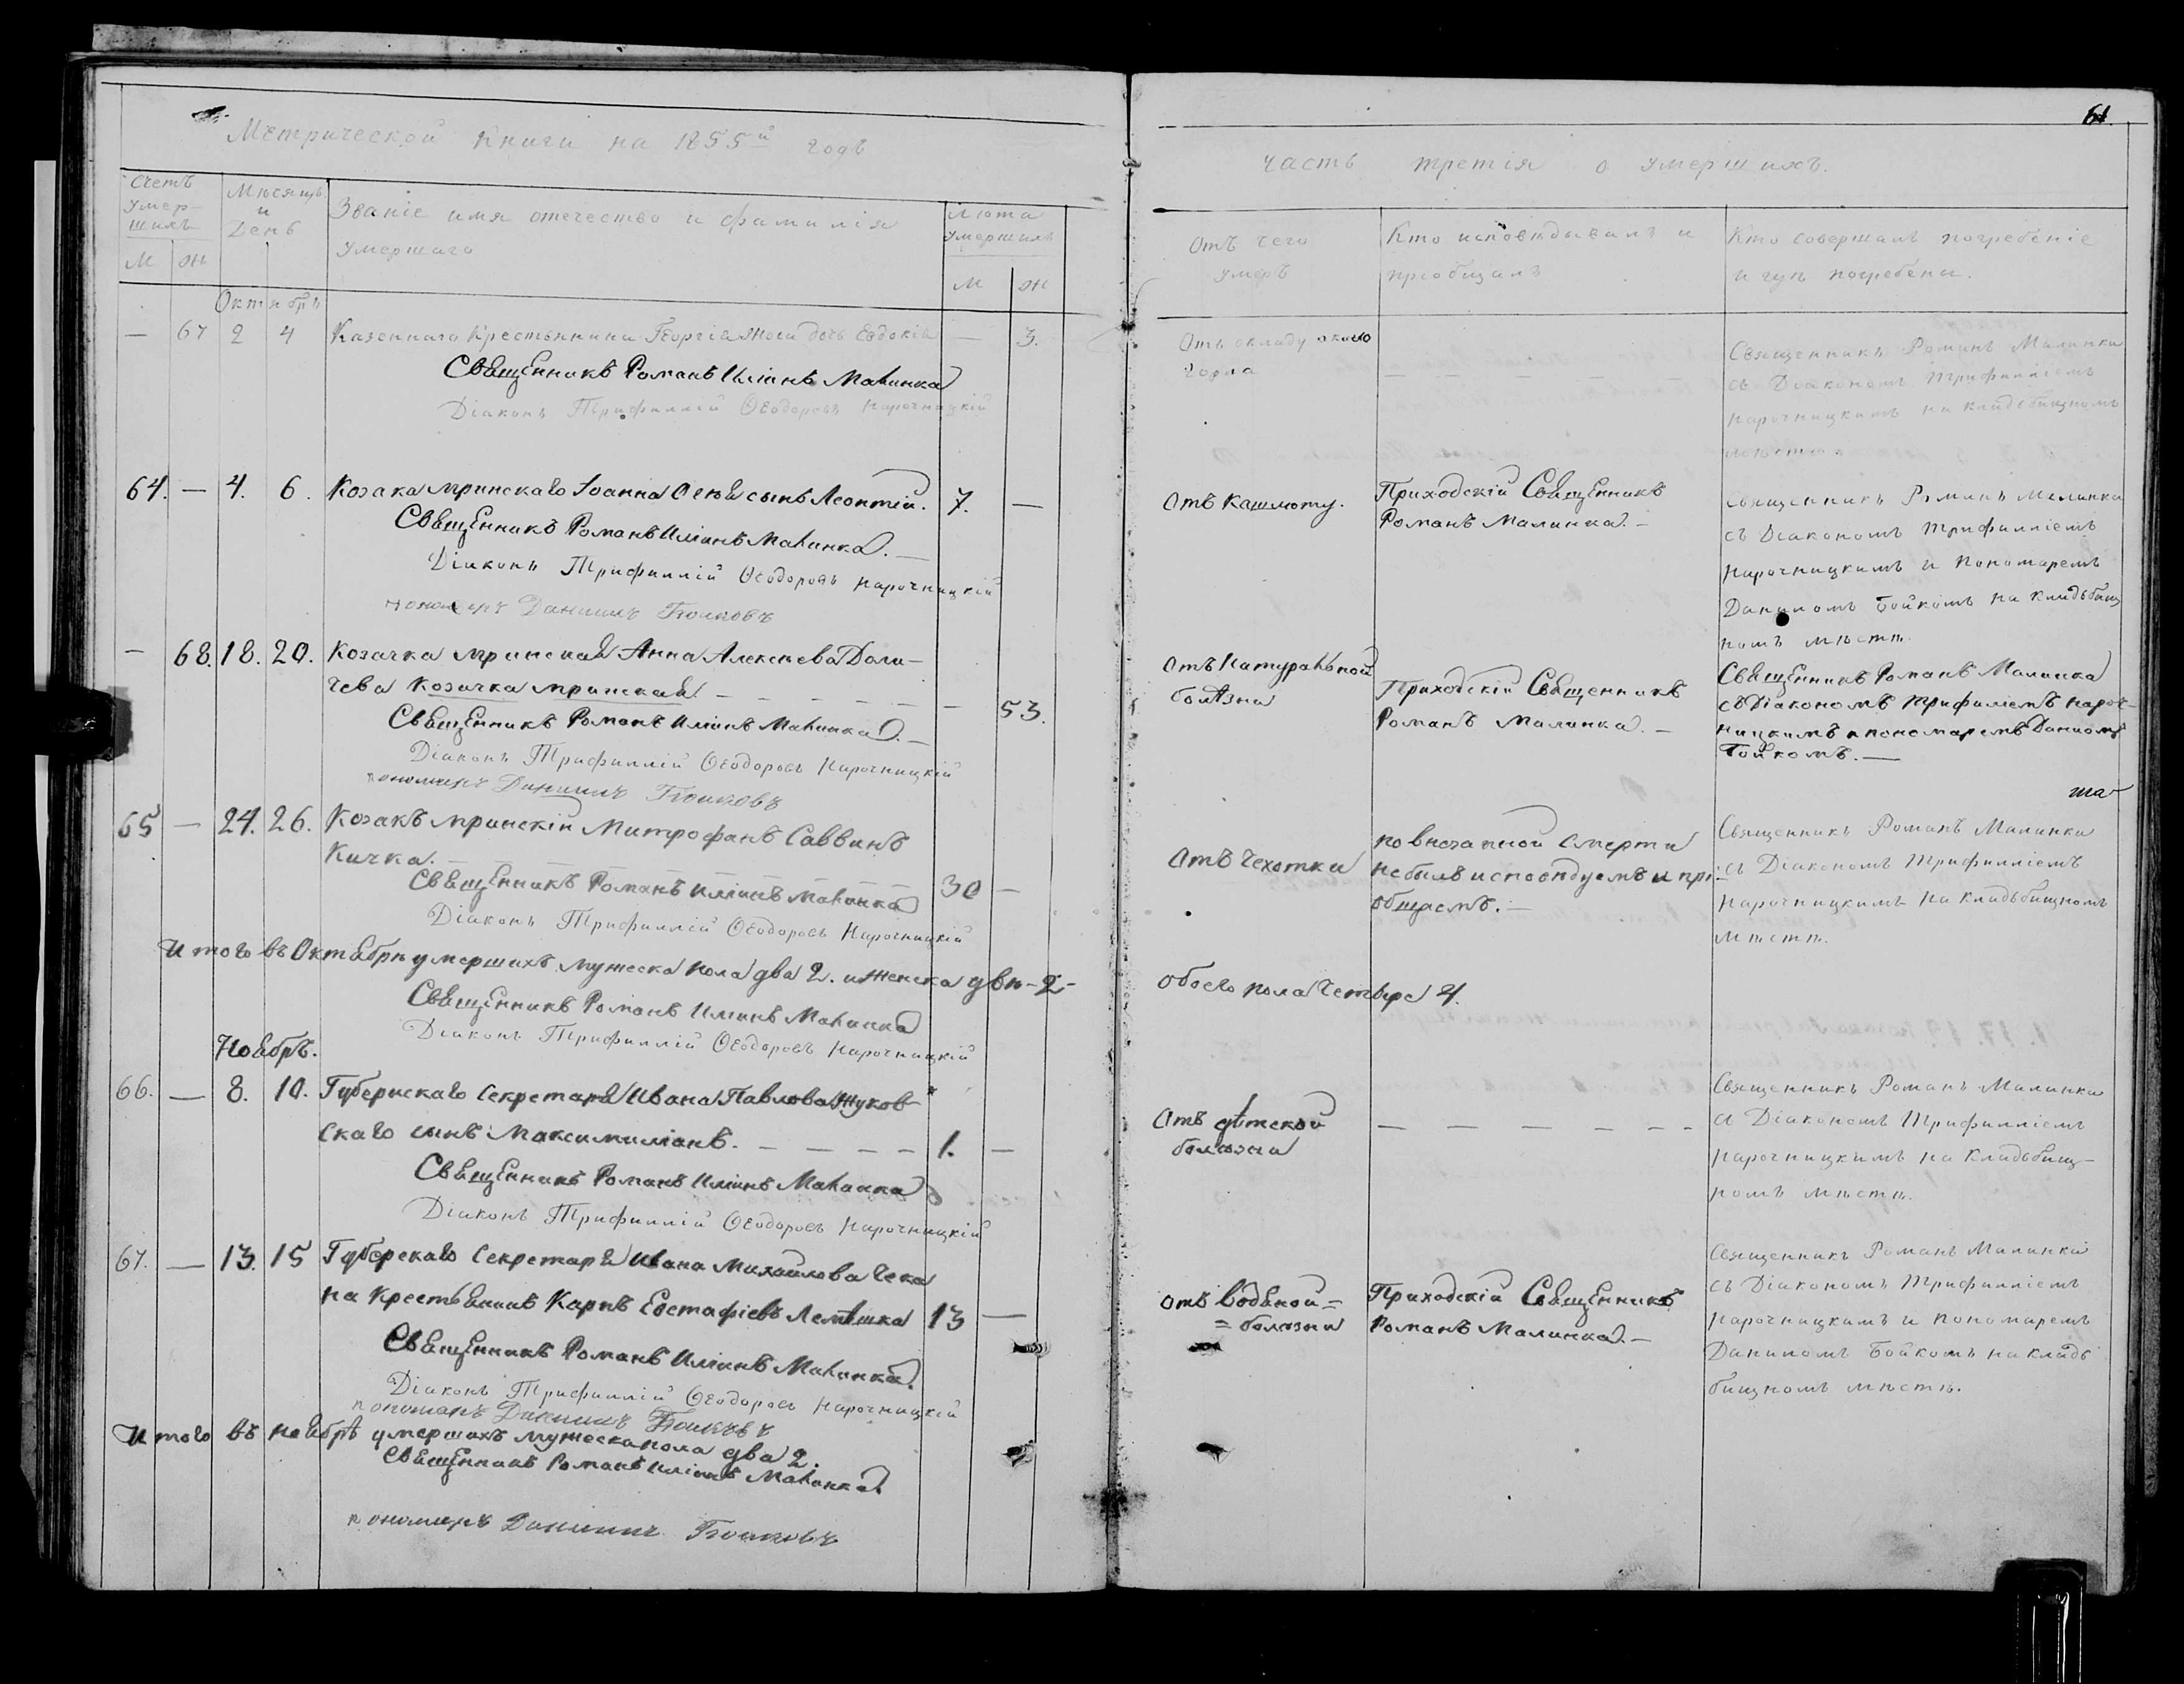 Метрической книги на 1855й годъ
Счетъ умер-шихъ
Мѣсяцъ и День
Званіе имя отечество и фамилія умершаго
Лѣта умершихъ
М ж
М ж
Октябрь
— 67 2 4 Казеннаго Крестьянина Георгія дочь Евдокія — 3.
Священникъ Романъ Иліинъ Малинка
Діаконъ Трифиллій Ѳеодоровъ Нарочницкій
64. — 4. 6. Козака мринскаго Іоанна сынъ Леонтій. 7. —
Священникъ Романъ Иліинъ Малинка. —
Діаконъ Трифиллій Ѳеодоровъ Нарочницкій
пономарь Даниилъ Боиковъ
— 68. 18. 20. Козачка мринская Анна Алексѣева Доли-
чева Козачка мринская — 53.
Священникъ Романъ Иліинъ Малинка. —
Діаконъ Трифиллій Ѳеодоровъ Нарочницкій
пономарь Даниилъ Боиковъ
65 — 24. 26. Козакъ мринскій Митрофанъ Саввинъ
Кичка. 30 —
Священникъ Романъ Иліинъ Малинка
Діаконъ Трифиллій Ѳеодоровъ Нарочницкій
Итого въ Октябрѣ умершихъ мужеска пола два 2. и женска двѣ - 2 -
Священникъ Романъ Иліинъ Малинка
Діаконъ Трифиллій Ѳеодоровъ Нарочницкій
Ноябрь.
66. — 8. 10. Губернскаго Секретаря Ивана Павлова Жуков-
скаго сынъ Максимиліанъ. — — — — 1. —
Священникъ Романъ Иліинъ Малинка
Діаконъ Трифиллій Ѳеодоровъ Нарочницкій
67. — 13. 15 Губерскаго Секретаря Ивана Михайлова Чека
на Крестьянинъ Карпъ Евстафіевъ Лемѣшка 13 —
Священникъ Романъ Иліинъ Малинка.
Діаконъ Трифиллій Ѳеодоровъ Нарочницкій
пономарь Даниилъ Боиковъ
Итого въ ноябрѣ умершихъ мужеска пола два 2.
Священникъ Романъ Иліинъ Малинка
пономарь Даниилъ Боиковъ
61.
часть третія о умершихъ.
Отъ чего умеръ
Кто исповѣдывалъ и пріобщалъ
Кто совершалъ погребеніе и гдѣ погребены.
Отъ окладу около
горла
Священникъ Романъ Малинка
съ Діакономъ Трифилліемъ
Нарочницкимъ на кладбищномъ
мѣстѣ
Отъ Кашлюту.
Приходскій Священникъ
Романъ Малинка. —
Священникъ Романъ Малинка
съ Діакономъ Трифилліемъ
Нарочницкимъ и Пономаремъ
Даниломъ Бойкомъ на кладьбищ
номъ мѣстѣ.
Отъ Натуральной
болѣзни
Приходскій Священникъ
Романъ Малинка. —
Священникъ Романъ Малинка
съ Діакономъ Трифиліемъ Нароч-
ницкимъ и пономаремъ Даниломъ
Бойкомъ. —
Отъ Чехотки
по внезапной смерти
не былъ исповѣдуемъ и прі-
общаемъ. —
Священникъ Романъ Малинка
съ Діакономъ Трифилліемъ
Нарочницкимъ на кладьбищномъ
мѣстѣ.
обоего пола Четыре 4.
Отъ дѣтской
болѣзни
— — — — — —
Священникъ Романъ Малинка
съ Діакономъ Трифилліемъ
Нарочницкимъ на Кладьбищ-
номъ мѣстѣ.
отъ водяной =
= болѣзни
Приходскій Священникъ
Романъ Малинка. —
Священникъ Романъ Малинка
съ Діакономъ Трифилліемъ
Нарочницкимъ и пономаремъ
Даниломъ Бойкомъ на кладь
бищномъ мѣстѣ.